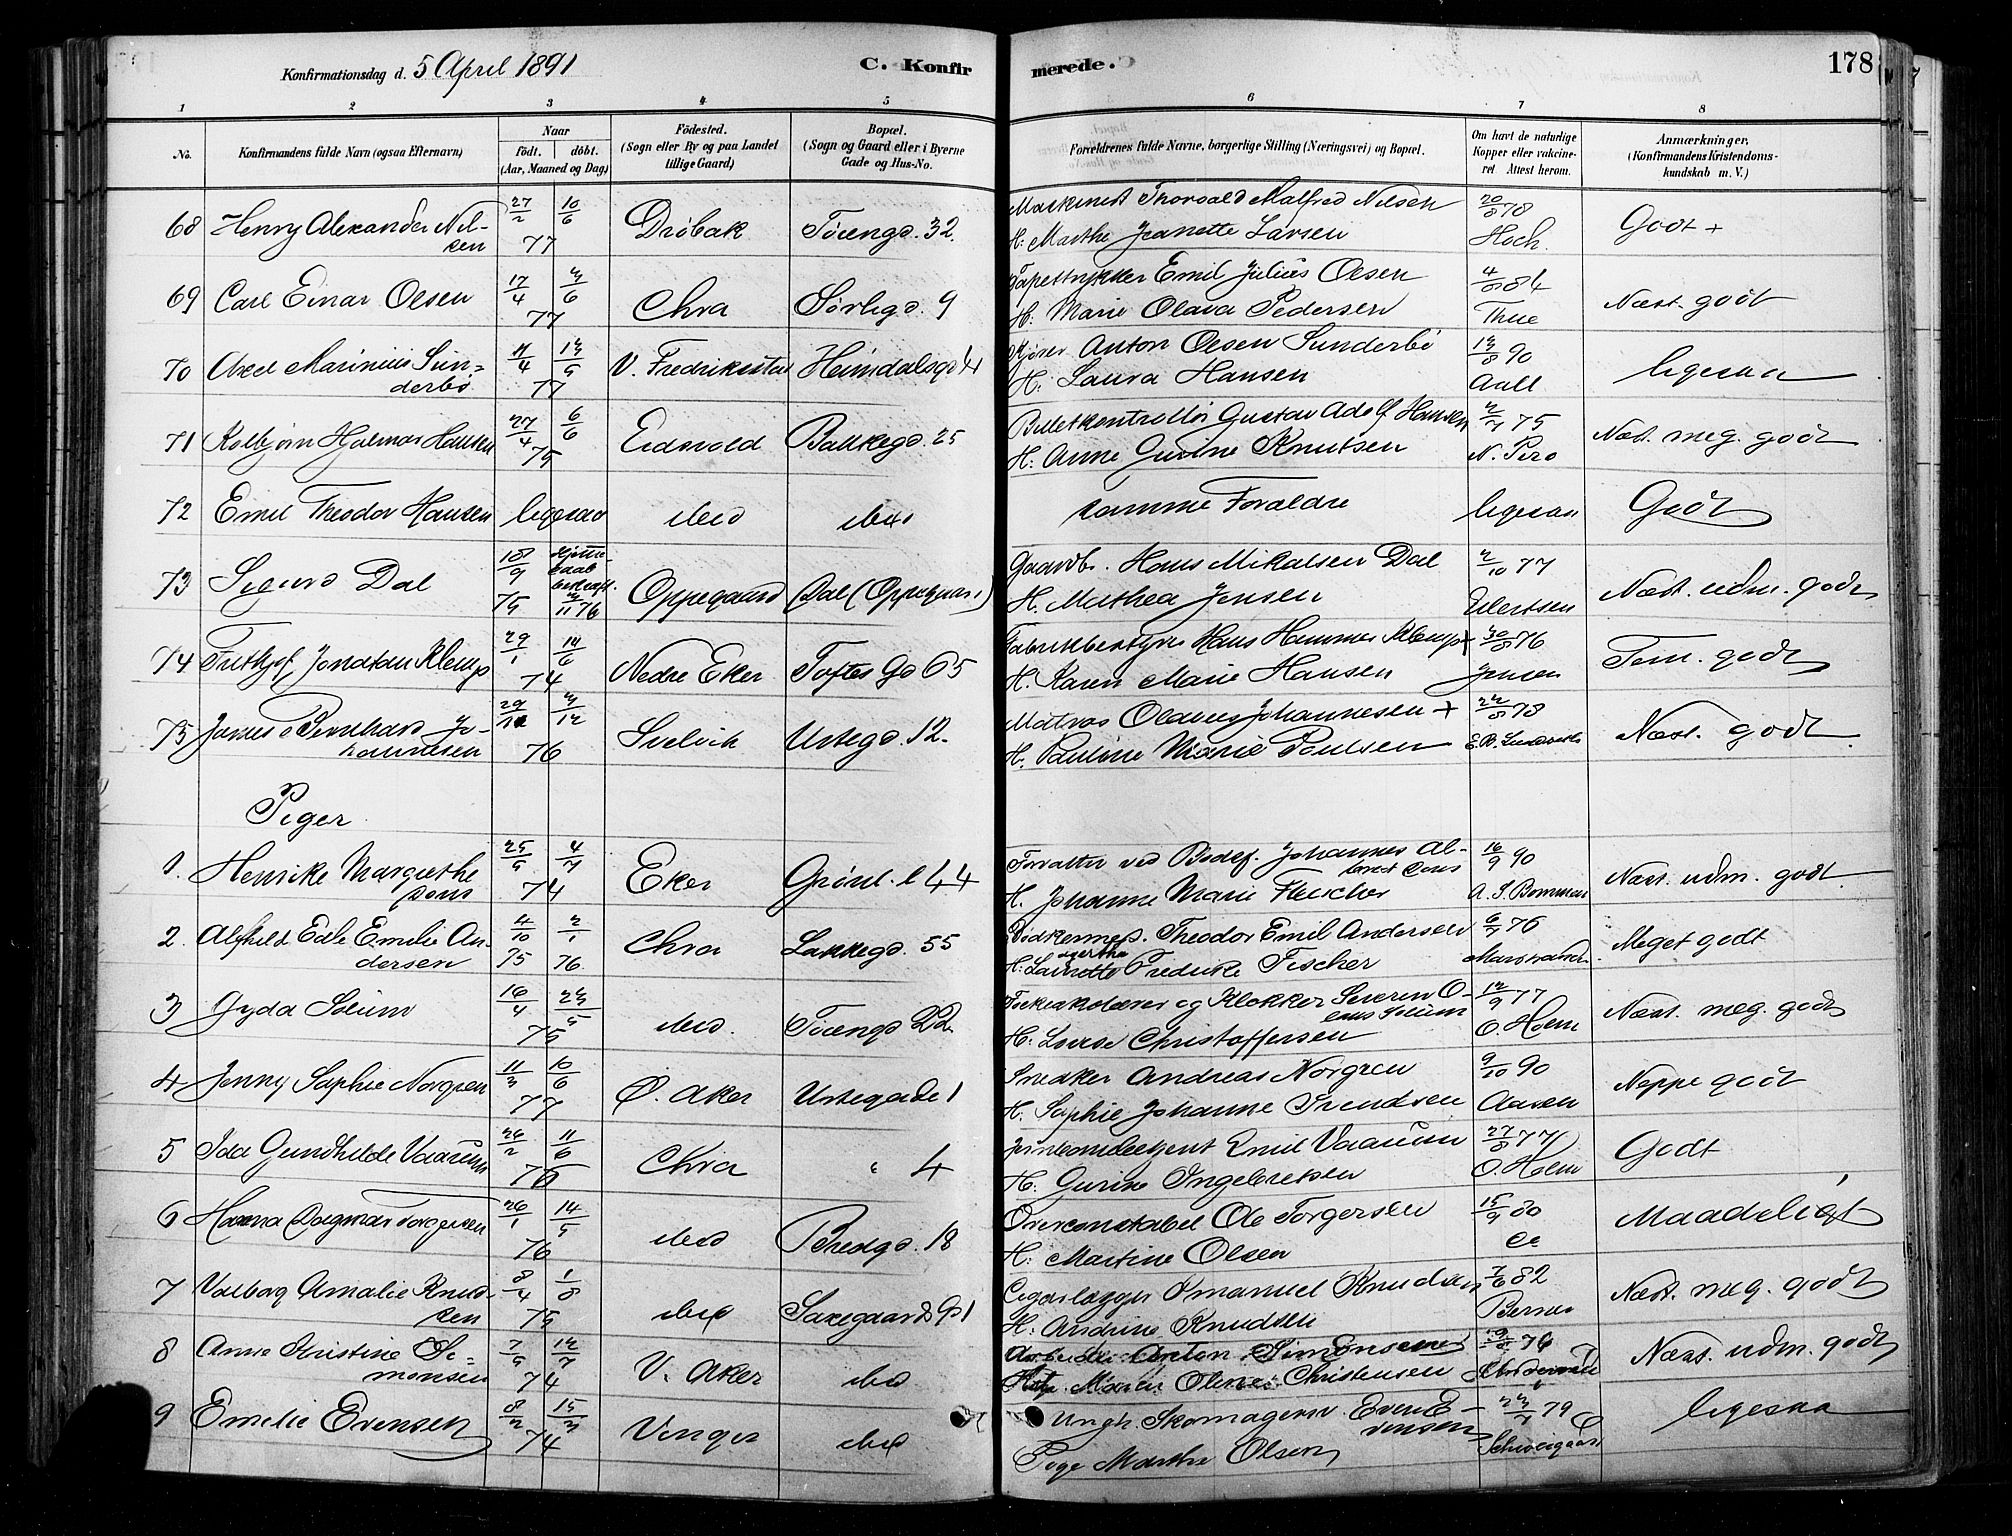 Konfirmationsdag d. 5 April 1891
C. Konfirmerede.
178
1 2 3 4 5 6 7 8
No.
Konfirmandens fulde Navn (ogsaa Efternavn)
Naar
födt. döbt.
(Aar, Maaned og Dag)
Födested.
(Sogn eller By og paa Landet
tillige Gaard)
Bopæl.
(Sogn og Gaard eller i Byerne
Gade og Hus-No.
Forældrenes fulde Navne, borgerlige Stilling (Næringsvei) og Bopæl.
Om havt de naturlige
Kopper eller vakcine-
ret Attest herom.
Anmærkninger.
(Konfirmandens Kristendoms-
kundskab m. V.)
68 Henry Alexander Nil-
sen 27/2 10/6 77 Dröbak Töiengd. 32. Maskinist Thorvald Malfred Nilsen
H. Marthe Jeanette Larsen 20/8 78 Hoch. Godt +
69 Carl Einar Olsen 17/4 3/6 77 Chra Sörligd. 9 Tapettrykker Emil Julius Olsen
H. Marie Olava Pedersen 4/8 84 Thue Næst. godt
70 Axel Marinius Sun-
derbö 11/4 13/5 77 V. Fredrikstad Heimdalsgd 4 Kjörer Anton Olsen Sunderbö
H. Laura Hansen 13/8 90 Aall ligesaa
71 Kolbjörn Hjalmar Hansen 27/4 6/6 75 Eidsvold Bakkegd. 25 Billetkontrollör Gustav Adolf Hansen
H. Anne Gurine Knutsen 75 Næst. meg. godt
72 Emil Theodor Hansen ligesaa ibid ibid samme Foraldre ligesaa Godt
73 Sigurd Dal 18/9 75 11 76 Oppegaard Dal (Oppegaard) Gaardbr. Hans Mikalsen Dal
H. Mathea Jensen 2/10 77 Eilertsen Næst. udm. godt
74 Frithjof Jonatan Klemp 29/1 14/6 74 Nedre Eker Toftes Gd 65 Fabrikbestyrer Hans Hemmer Klemp +
H. Karen Marie Hansen 30/8 76 Jensen Tem. godt
75 James Bernhard Jo-
hannesen 29/11 3/12 76 Svelvik Urtegd. 12. Matros Olaus Johannesen +
H. Pauline Marie Poulsen 22/8 78 Næst. godt
Piger
1. Henrike Margrethe
Dons 25/5 4/7 74 Eker Grönl. l 44 Forvalter ved Bodsf. Johannes Al-
bret Dons
H. Johanne Marie Fleischer 16/9 90 Næst. udm. godt.
2. Alfhild Edle Emelie An-
dersen 4/10 75 2/1 76 Chra Lakkegd. 55 Bödkermes. Theodor Emil Andersen
H. Fredrike Fischer 6/7 76 Meget godt
3 Gyda Solum 16/4 23/5 75 ibid. Töiengd 22 Folkeskolelærer og Klokker Severin O-
laus Solum
H. Lovise Christoffersen 12/9 77 O. Holm Næst. meg. godt
4 Jenny Sophie Norgren 11/3 10/6 77 Ö. Aker Urtegade 1 Snedker Andreas Norgren
H. Sophie Johanne Svendsen 9/10 90 Aasen Neppe godt
5 Ida Gundhilde Vaarum 26/2 11/6 76 Chra " 4 Emil Vaarum
H. Gurine Ingebretsen 27/8 77 O. Holm Godt
6 Hanna Dagmar Torgersen 26/1 14/5 76 ibid Bredgd. 18 Overconstabel Ole Torgersen
H. Martine Olsen 15/9 80 Maadeligt
7 Valborg Amalie Knud-
sen 8/4 1/8 75 ibid Saxegaardsgd 1 Cigarlægger Emanuel Knudsen
H. Andrine Knudsen 7/6 82 Berner Næst. meg. godt
8 Anna Kristine Si-
monsen 7/5 12/7 74 V. Aker ibid Arbeider Anton Simonsen
Maren Oline Christensen 9/8 76 Næst. udm. godt
9 Emelie Evensen 8/2 15/3 74 Vinger ibid Ungk. Skomagersv. Even E-
vensen
Pige Marthe Olsen 79 Schweigaard ligesaa